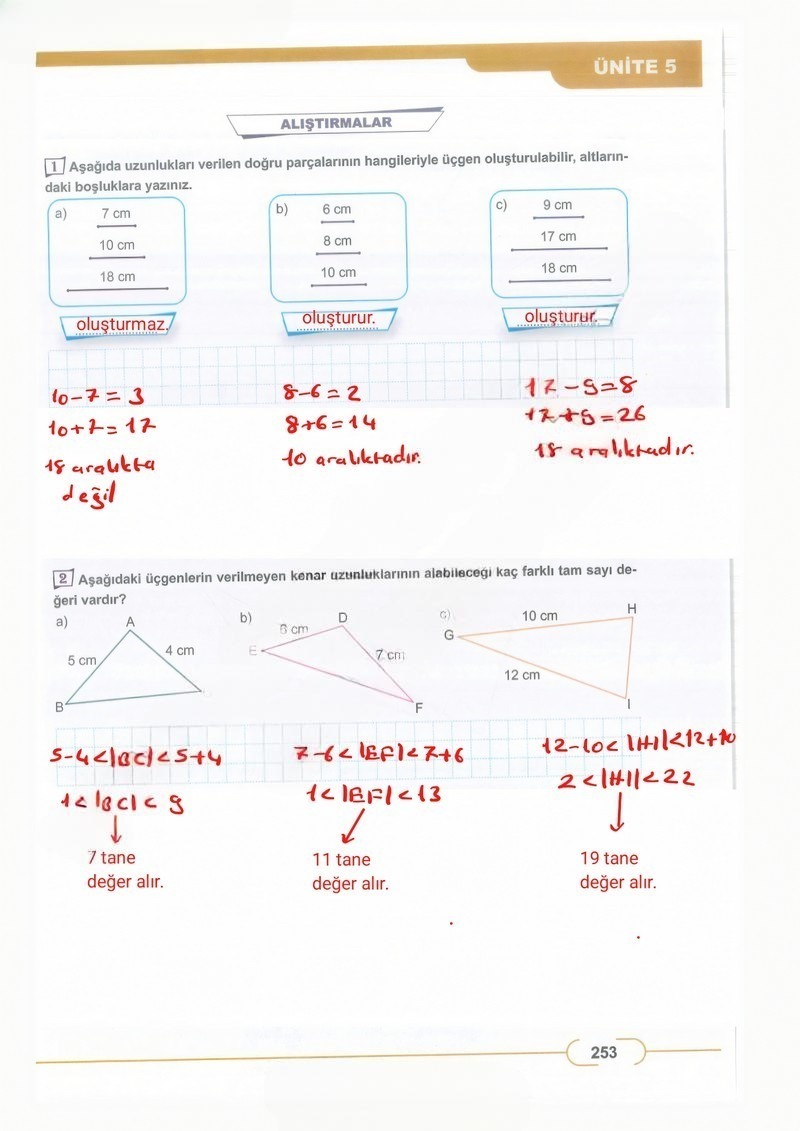 ÜNİTE 5
ALIŞTIRMALAR
1 Aşağıda uzunlukları verilen doğru parçalarının hangileriyle üçgen oluşturulabilir, altların-
daki boşluklara yazınız.
a) 7 cm
10 cm
18 cm
oluşturmaz.
b) 6 cm
8 cm
10 cm
oluşturur.
c) 9 cm
17 cm
18 cm
oluşturur.
10-7=3
10+7=17
18 aralıkta
değil
8-6=2
8+6=14
10 aralıktadır.
17-9=8
17+9=26
18 aralıktadır.
2 Aşağıdaki üçgenlerin verilmeyen kenar uzunluklarının alabileceği kaç farklı tam sayı de-
ğeri vardır?
a)
A
5 cm
4 cm
B
b)
D
6 cm
E
7 cm
F
c)
10 cm
H
G
12 cm
I
5-4<|BC|<5+4
1<|BC|<9
7 tane
değer alır.
7-6<|EF|<7+6
1<|EF|<13
11 tane
değer alır.
12-10<|HI|<12+10
2<|HI|<22
19 tane
değer alır.
253